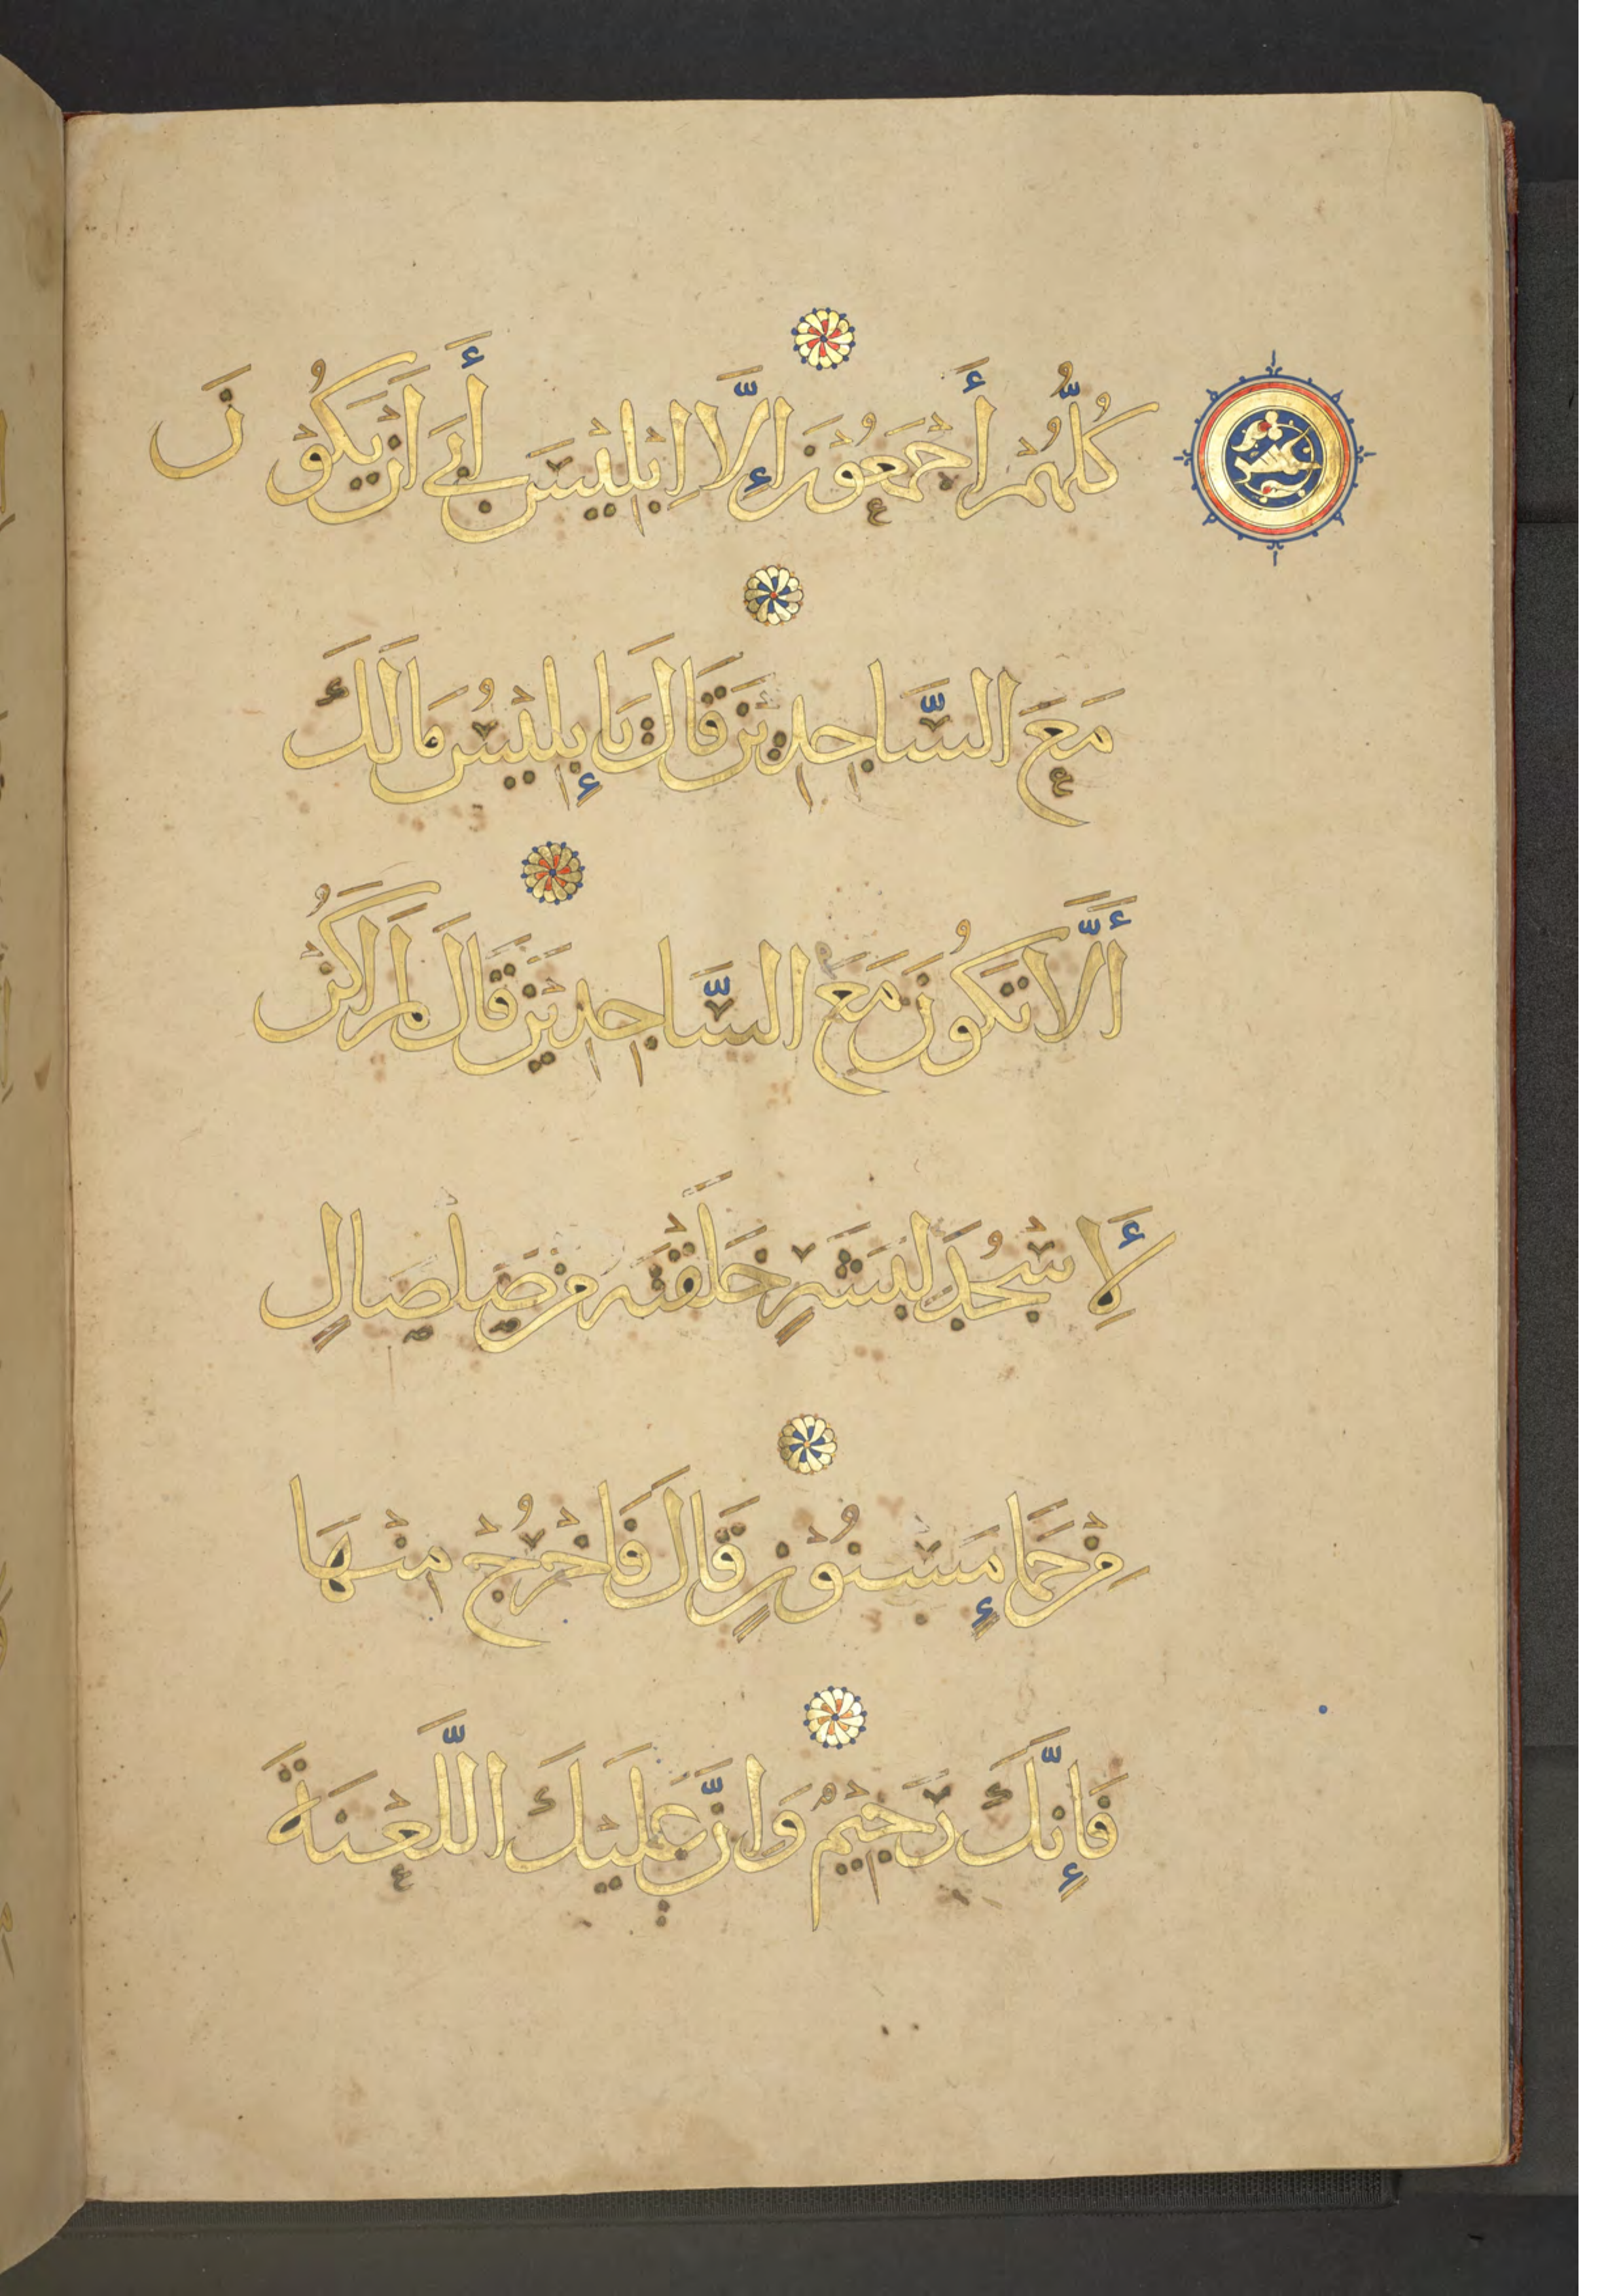 كُلُّهُمْ أَجْمَعُوْنَ إِلَّا إِبْلِيْسَ أَبَى أَنْ يَكُوْنَ
مَعَ السَّاجِدِيْنَ قَالَ يَا إِبْلِيْسُ مَا لَكَ
أَلَّا تَكُونَ مَعَ السَّاجِدِيْنَ قَالَ لَمْ أَكُنْ
لِأَسْجُدَ لِبَشَرٍ خَلَقْتَهُ مِنْ صَلْصَالٍ
مِنْ حَمَإٍ مَسْنُوْنٍ قَالَ فَاخْرُجْ مِنْهَا
فَإِنَّكَ رَجِيْمٌ وَإِنَّ عَلَيْكَ اللَّعْنَةَ